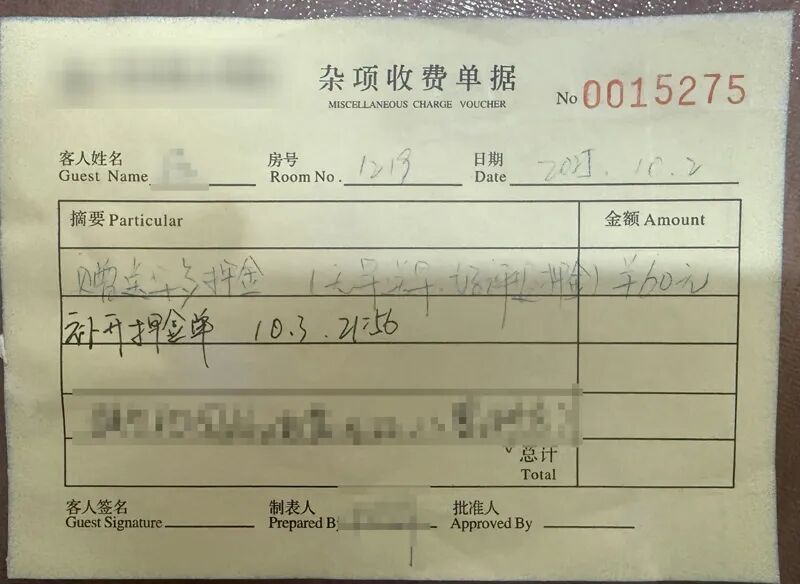 杂项收费单据
MISCELLANEOUS CHARGE VOUCHER
No 0015275
客人姓名 房号 日期
Guest Name Room No. 1219 Date 2025.10.2
摘要 Particular 金额 Amount
赠 押金 (无早 押金) ¥60元
补开押金单 10.3. 21:56
总计
Total
客人签名 制表人 批准人
Guest Signature Prepared By Approved By